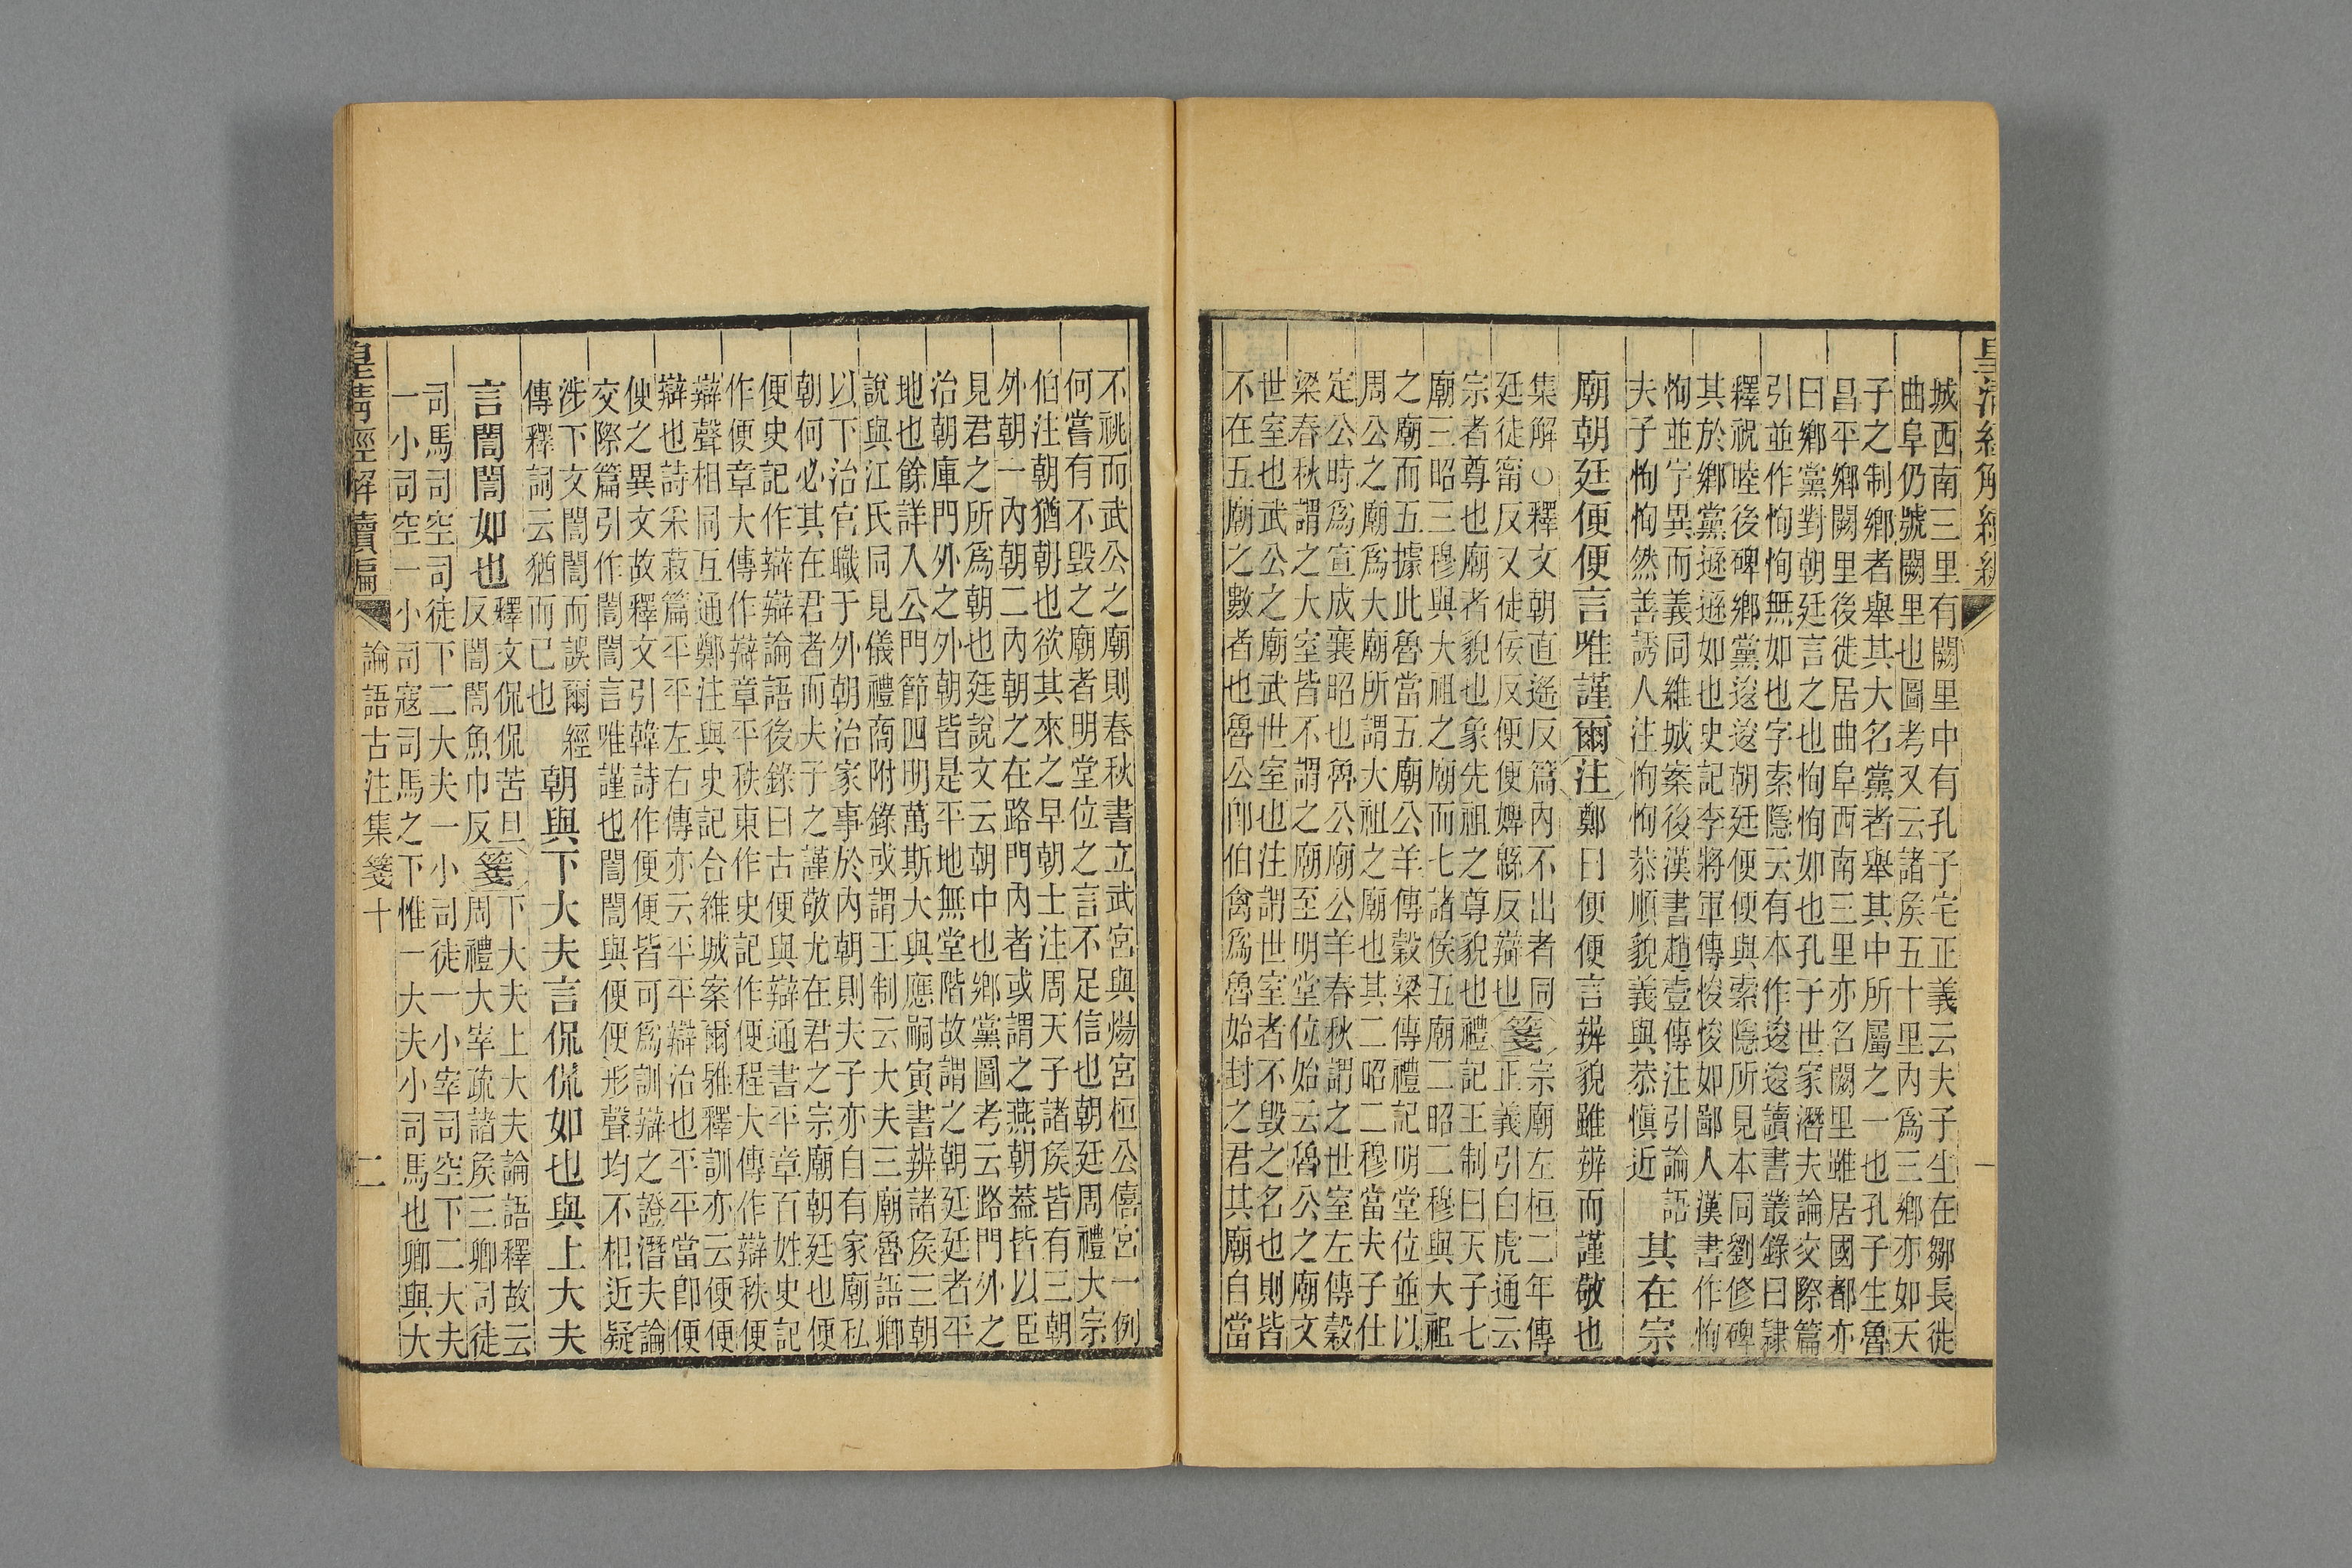 皇清經解續編
一
城西南三里有闕里中有孔子宅正義云夫子生在鄒長徙
曲阜仍號闕里也圖考又云諸矦五十里內爲三鄉亦如天
子之制鄉者舉其大名黨者舉其中所屬之一也孔子生魯
昌平鄉闕里後徙居曲阜西南三里亦名闕里雖居國都亦
曰鄉黨對朝廷言之也恂恂如也孔子世家潛夫論交際篇
引並作恂恂無如也字索隱云有本作逡逡讀書叢錄曰隸
釋祝睦後碑鄉黨逡逡朝廷便便與索隱所見本同劉修碑
其於鄉黨遜遜如也史記李將軍傳悛悛如鄙人漢書作恂
恂並字異而義同維城案後漢書趙壹傳注引論語
夫子恂恂然善誘人注恂恂恭順貌義與恭愼近
其在宗
廟朝廷便便言唯謹爾注鄭曰便便言辨貌雖辨而謹敬也
集解○釋文朝直遙反篇內不出者同
廷徒甯反又徒佞反便便婢緜反辯也箋
宗廟左桓二年傳
正義引白虎通云
宗者尊也廟者貌也象先祖之尊貌也禮記王制曰天子七
廟三昭三穆與大祖之廟而七諸侯五廟二昭二穆與大祖
之廟而五據此魯當五廟公羊傳穀梁傳禮記明堂位並以
周公之廟爲大廟所謂大祖之廟也其二昭二穆當夫子仕
定公時爲宣成襄昭也魯公廟公羊春秋謂之世室左傳穀
梁春秋謂之大室皆不謂之廟至明堂位始云魯公之廟文
世室也武公之廟武世室也注謂世室者不毀之名也則皆
不在五廟之數者也魯公卽伯禽爲魯始封之君其廟自當
不祧而武公之廟則春秋書立武宮與煬宮桓公僖宮一例
何嘗有不毀之廟者明堂位之言不足信也朝廷周禮大宗
伯注朝猶朝也欲其來之早朝士注周天子諸矦皆有三朝
外朝一內朝二內朝之在路門內者或謂之燕朝葢皆以臣
見君之所爲朝也廷說文云朝中也鄉黨圖考云路門外之
治朝庫門外之外朝皆是平地無堂階故謂之朝廷廷者平
地也餘詳人公門節四明萬斯大與應嗣寅書辨諸矦三朝
說與江氏同見儀禮商附錄或謂王制云大夫三廟魯語卿
以下治官職于外朝治家事於內朝則夫子亦自有家廟私
朝何必其在君者而夫子之謹敬尤在君之宗廟朝廷也便
便史記作辯辯論語後錄曰古便與辯通書平章百姓史記
作便章大傳作辯章平秩東作史記作便程大傳作辯秩便
辯聲相同互通鄭注與史記合維城案爾雅釋訓亦云便便
辯也詩采菽篇平平左右傳亦云平平辯治也平平當卽便
便之異文故釋文引韓詩作便便皆可爲訓辯之證潛夫論
交際篇引作誾誾言唯謹也誾誾與便便形聲均不相近疑
涉下文誾誾而誤爾經
傳釋詞云猶而已也
朝與下大夫言侃侃如也與上大夫
言誾誾如也
釋文侃侃苦旦
反誾誾魚巾反箋
下大夫上大夫論語釋故云
周禮大宰疏諸矦三卿司徒
司馬司空司徒下二大夫一小司徒一小宰司空下二大夫
一小司空一小司寇司馬之下惟一大夫小司馬也卿與大
皇清經解續編
論語古注集箋十
二